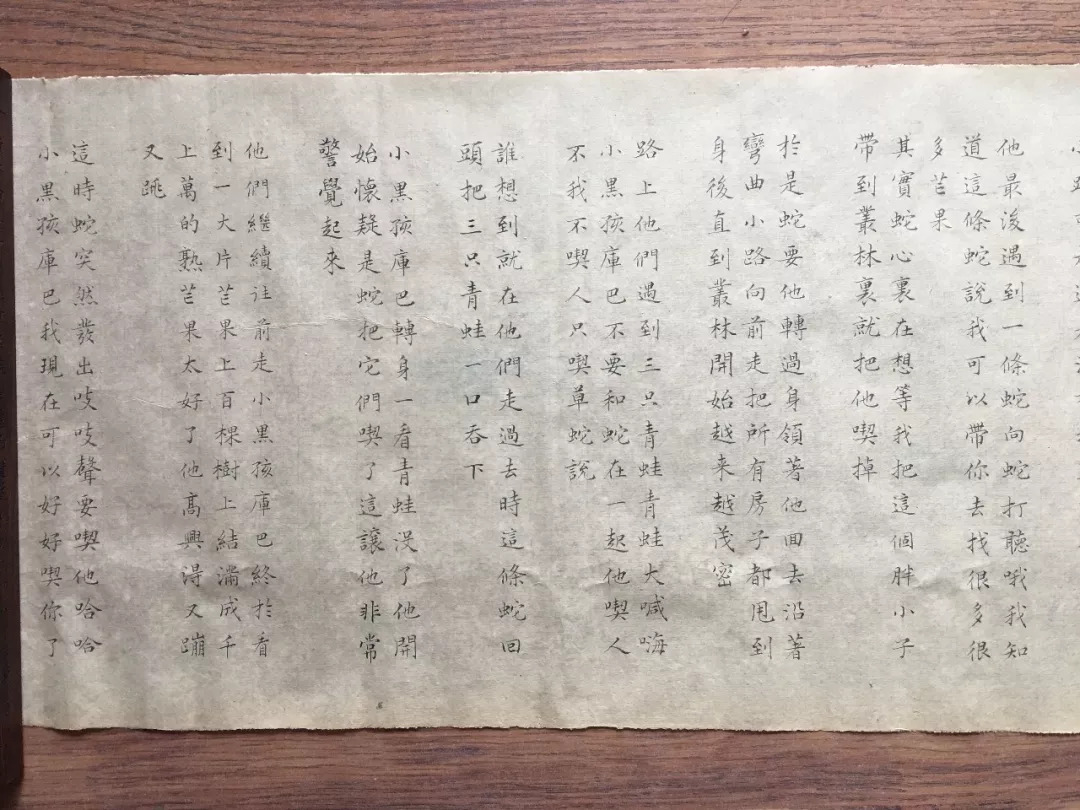 他最後遇到一條蛇向蛇打聽哦我知
道這條蛇說我可以帶你去找很多很
多芒果
其實蛇心裏在想等我把這個胖小子
帶到叢林裏就把他喫掉
於是蛇要他轉過身領著他面去沿著
彎曲小路向前走把所有房子都甩到
身後直到叢林開始越来越茂密
路上他們遇到三只青蛙青蛙大喊嗨
小黑孩庫巴不要和蛇在一起他喫人
不我不喫人只喫草蛇說
誰想到就在他們走過去時這條蛇回
頭把三只青蛙一口吞下
小黑孩庫巴轉身一看青蛙没了他開
始懷疑是蛇把它們喫了這讓他非常
警覺起来
他們繼續往前走小黑孩庫巴終於看
到一大片芒果上百棵樹上結滿成千
上萬的熟芒果太好了他高興得又蹦
又跳
這時蛇突然發出吱吱聲要喫他哈哈
小黑孩庫巴我現在可以好好喫你了